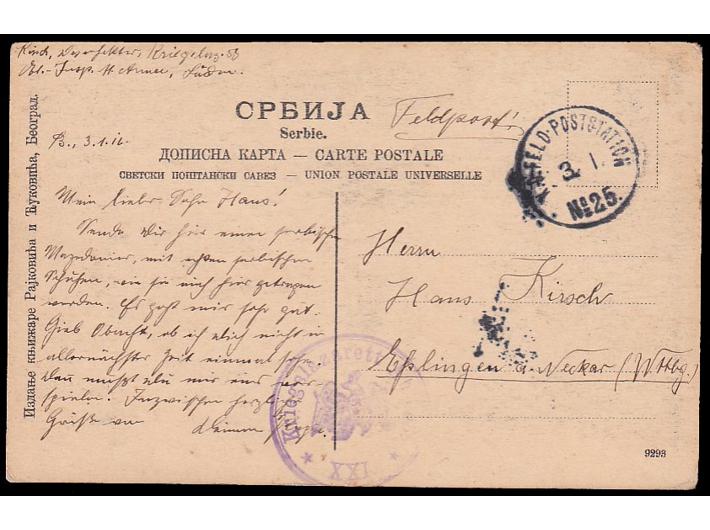 Kirsch, Kriegslaz. 53
Etl.-Insp. 11 Armee, Süden.
СРБИЈА
Feldpost!
Serbie.
ДОПИСНА КАРТА — CARTE POSTALE
СВЕТСКИ ПОШТАНСКИ САВЕЗ — UNION POSTALE UNIVERSELLE
Издање књижаре Рајковића и Ћуковића, Београд.
FELD-POSTSTATION
3. 1.
№ 25.
B., 3.1.16.
Mein lieber Sohn Hans!
Sende Dir hier einen serbischen
Mazedonier, mit echten serbischen
Schuhen, wie sie auch hier getragen
werden. Es geht mir sehr gut.
Gieb Obacht, ob ich dich nicht in
allernächster Zeit einmal sehe.
Dann mußt du mir eins vor-
spielen. Inzwischen herzl.
Grüße von Deinem
Herrn
Hans Kirsch
Eßlingen a. Neckar (Wttbg.)
Kriegslazarett
XXI
9293